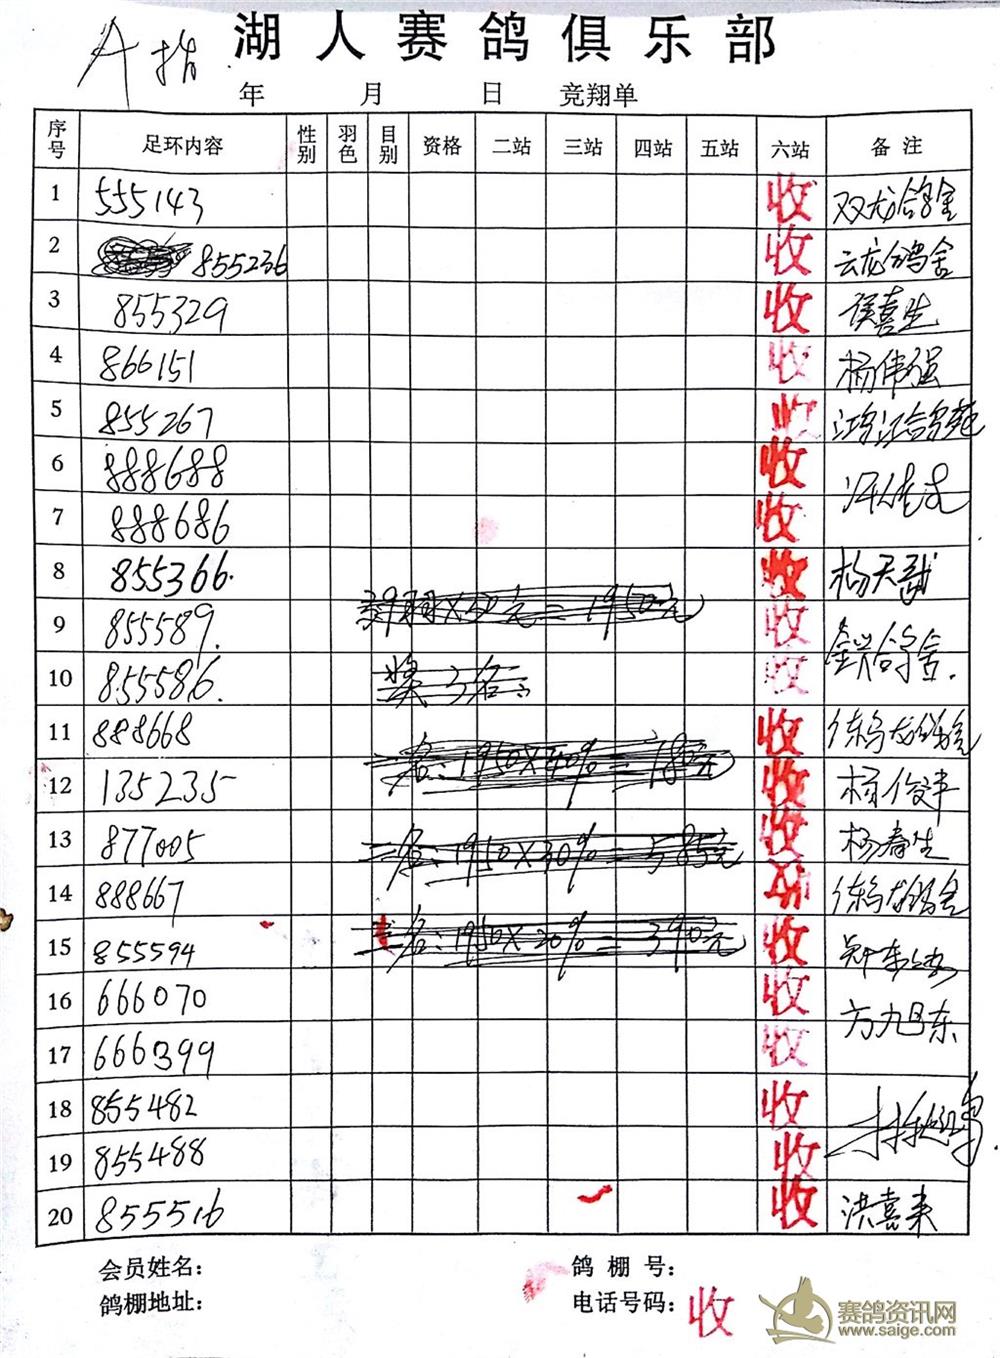 A 指
湖人赛鸽俱乐部
年 月 日 竞翔单
序号 足环内容 性别 羽色 目别 资格 二站 三站 四站 五站 六站 备注
1 555143 收 双龙鸽舍
2 855236 收 云龙鸽舍
3 855329 收 侯喜生
4 866151 收 杨伟强
5 855267 收
6 888688 收
7 888686 收
8 855366. 收 杨天武
39羽×50元=1950元
9 855589. 收
10 855586. 收
奖3名:
11 888668 收
一名:1950×40%=780元
12 135235 收 杨俊丰
13 877005 收 杨春生
二名:1950×30%=585元
14 888667 收
15 855594 收
三名:1950×20%=390元
16 666070 收 方旭东
17 666399 收
18 855482 收
19 855488 收
20 855516 收 洪喜来
会员姓名: 鸽棚号:
鸽棚地址: 电话号码: 收
赛鸽资讯网
www.saige.com